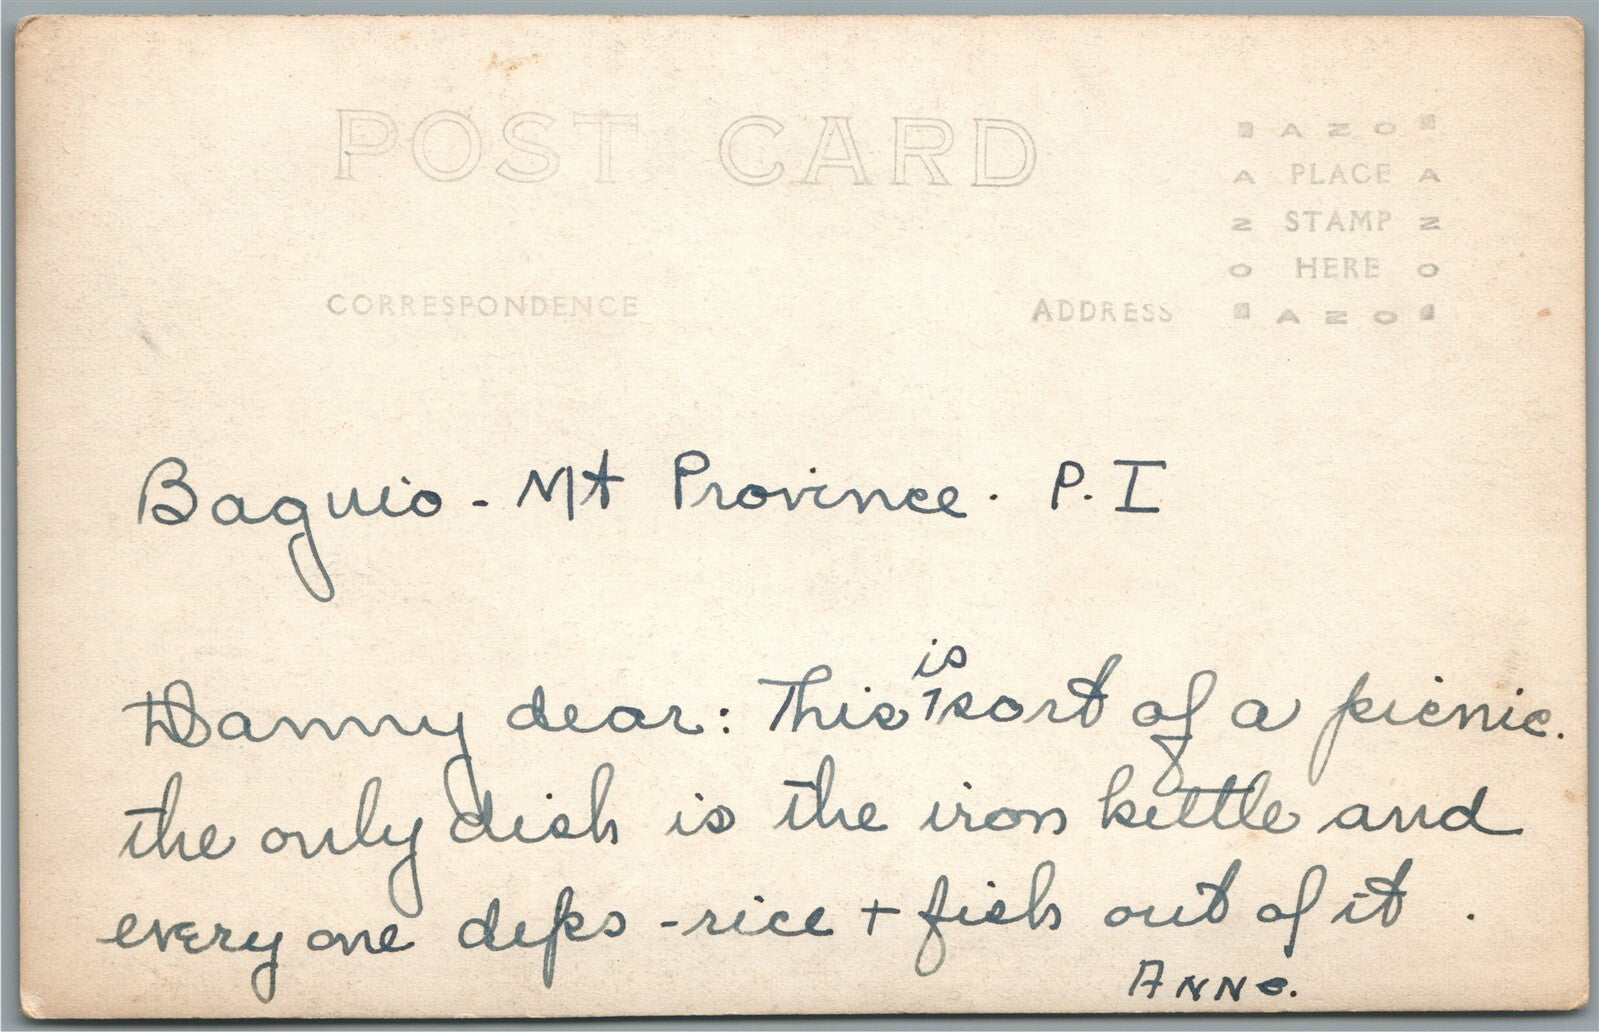 POST CARD
AZO
A PLACE A
Z STAMP Z
O HERE O
AZO
CORRESPONDENCE ADDRESS
Baguio - Mt Province. P.I
Danny dear: This is sort of a picnic.
the only dish is the iron kettle and
every one deps - rice + fish out of it.
ANNE.